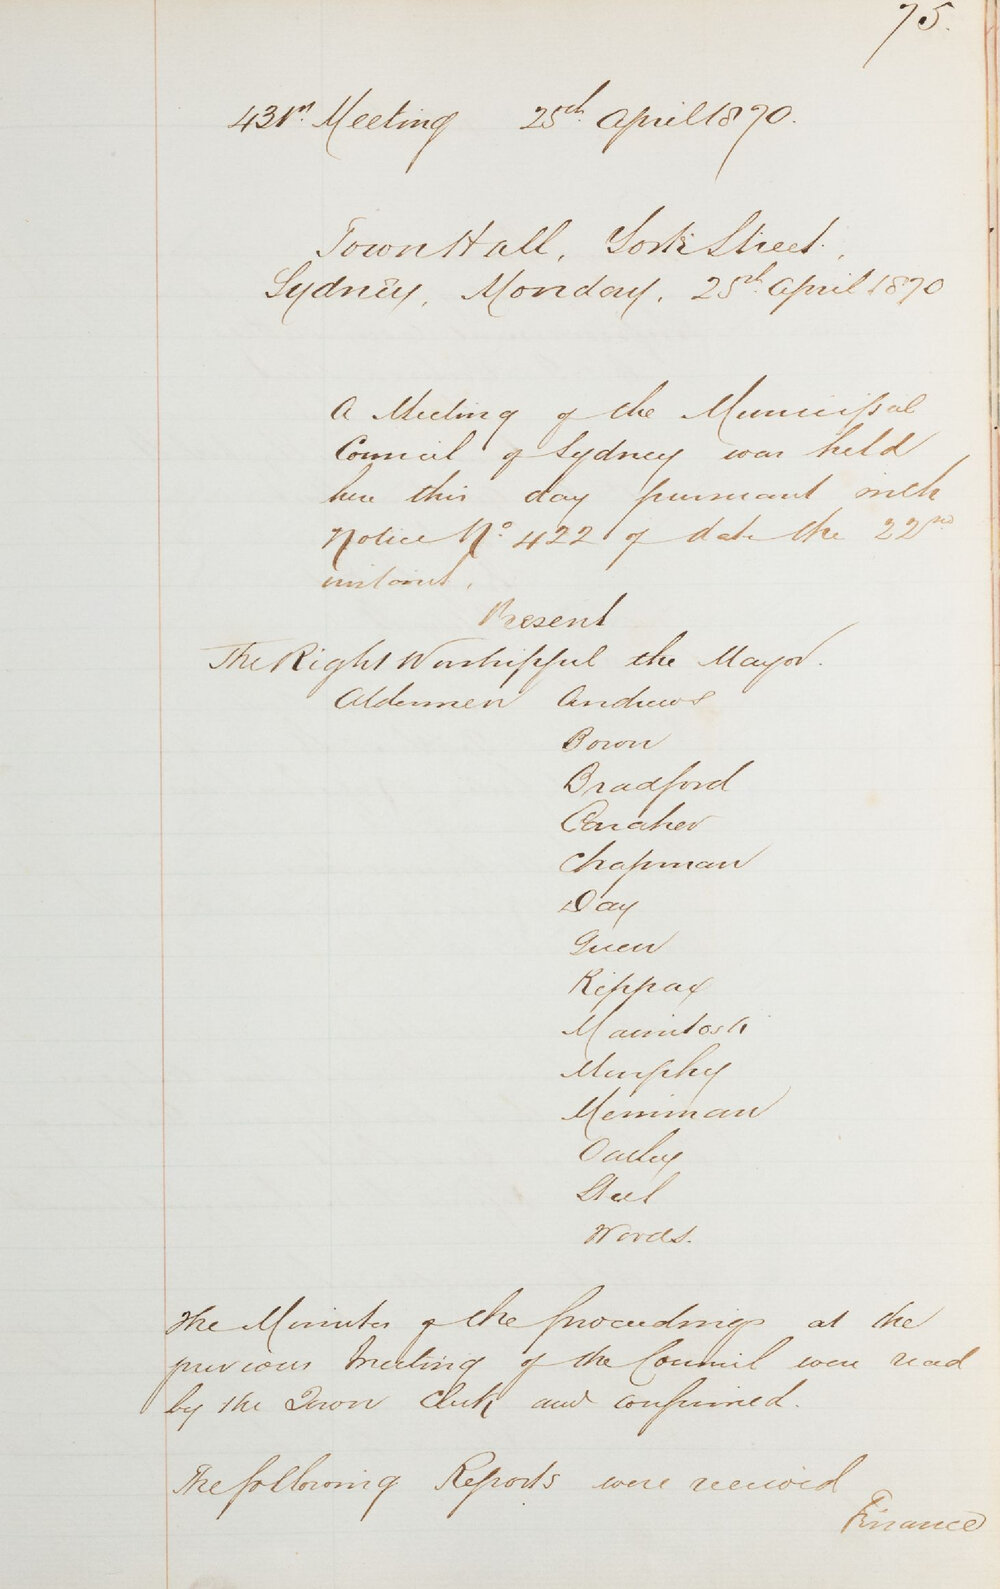 75.
431st Meeting 25th April 1870.
Town Hall, York Street,
Sydney, Monday, 25th April 1870
A Meeting of the Municipal
Council of Sydney was held
here this day pursuant with
Notice No. 422 of date the 22nd
instant.
Present
The Right Worshipful the Mayor.
Aldermen Andrews
Bown
Bradford
Caraher
Chapman
Day
Green
Kippax
Macintosh
Murphy
Merriman
Oatley
Steel
Woods.
The Minutes of the proceedings at the
previous Meeting of the Council were read
by the Town Clerk and confirmed.
The following Reports were received
Finance